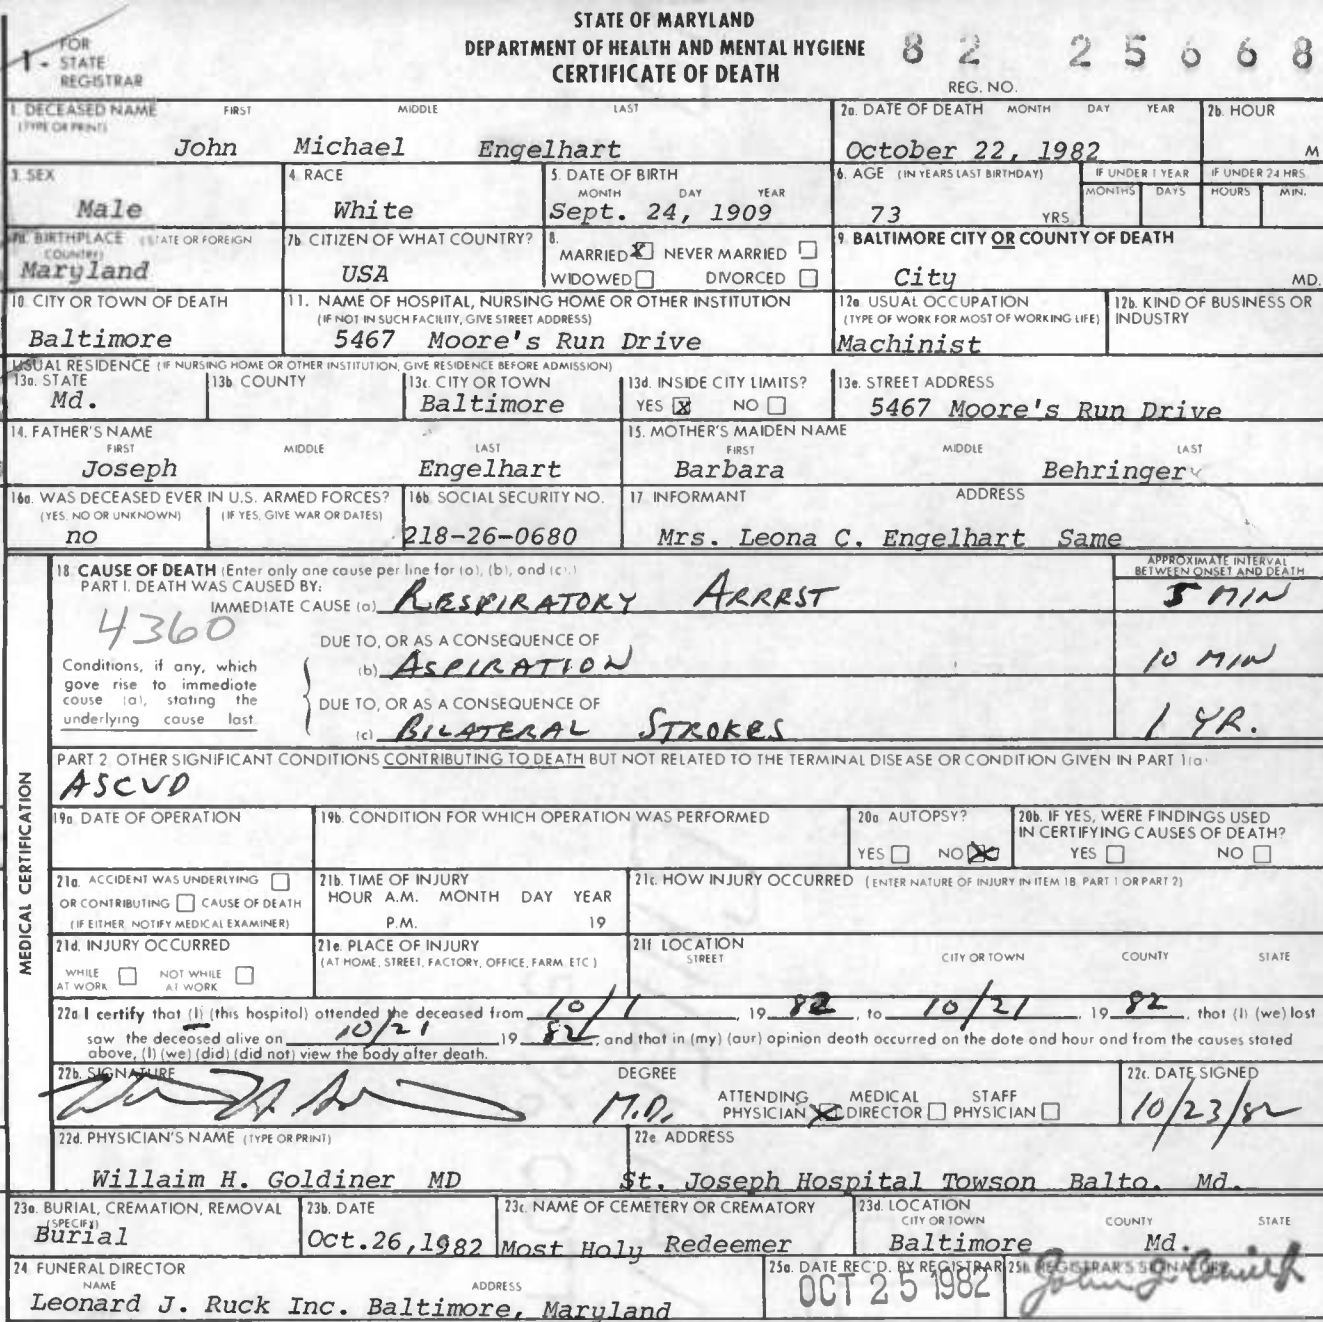 STATE OF MARYLAND
DEPARTMENT OF HEALTH AND MENTAL HYGIENE
CERTIFICATE OF DEATH
1 - FOR STATE REGISTRAR
82 25668
REG. NO.
1. DECEASED NAME (TYPE OR PRINT) FIRST MIDDLE LAST
John Michael Engelhart
2a. DATE OF DEATH MONTH DAY YEAR
October 22, 1982
2b. HOUR
M
3. SEX
Male
4. RACE
White
5. DATE OF BIRTH
MONTH DAY YEAR
Sept. 24, 1909
6. AGE (IN YEARS LAST BIRTHDAY)
73 YRS.
IF UNDER 1 YEAR
MONTHS DAYS
IF UNDER 24 HRS.
HOURS MIN.
7a. BIRTHPLACE (STATE OR FOREIGN COUNTRY)
Maryland
7b. CITIZEN OF WHAT COUNTRY?
USA
8.
MARRIED X NEVER MARRIED
WIDOWED DIVORCED
9. BALTIMORE CITY OR COUNTY OF DEATH
City MD.
10. CITY OR TOWN OF DEATH
Baltimore
11. NAME OF HOSPITAL, NURSING HOME OR OTHER INSTITUTION
(IF NOT IN SUCH FACILITY, GIVE STREET ADDRESS)
5467 Moore's Run Drive
12a. USUAL OCCUPATION
(TYPE OF WORK FOR MOST OF WORKING LIFE)
Machinist
12b. KIND OF BUSINESS OR INDUSTRY
USUAL RESIDENCE (IF NURSING HOME OR OTHER INSTITUTION, GIVE RESIDENCE BEFORE ADMISSION)
13a. STATE
Md.
13b. COUNTY
13c. CITY OR TOWN
Baltimore
13d. INSIDE CITY LIMITS?
YES X NO
13e. STREET ADDRESS
5467 Moore's Run Drive
14. FATHER'S NAME
FIRST MIDDLE LAST
Joseph Engelhart
15. MOTHER'S MAIDEN NAME
FIRST MIDDLE LAST
Barbara Behringer
16a. WAS DECEASED EVER IN U.S. ARMED FORCES?
(YES, NO OR UNKNOWN) (IF YES, GIVE WAR OR DATES)
no
16b. SOCIAL SECURITY NO.
218-26-0680
17. INFORMANT ADDRESS
Mrs. Leona C. Engelhart Same
MEDICAL CERTIFICATION
18. CAUSE OF DEATH (Enter only one cause per line for (a), (b), and (c).)
APPROXIMATE INTERVAL BETWEEN ONSET AND DEATH
PART I. DEATH WAS CAUSED BY:
IMMEDIATE CAUSE (a) RESPIRATORY ARRRST 5 MIN
4360
DUE TO, OR AS A CONSEQUENCE OF
(b) ASPIRATION 10 MIN
Conditions, if any, which gave rise to immediate cause (a), stating the underlying cause last.
DUE TO, OR AS A CONSEQUENCE OF
(c) BILATERAL STROKES 1 YR.
PART 2. OTHER SIGNIFICANT CONDITIONS CONTRIBUTING TO DEATH BUT NOT RELATED TO THE TERMINAL DISEASE OR CONDITION GIVEN IN PART 1(a)
ASCVD
19a. DATE OF OPERATION
19b. CONDITION FOR WHICH OPERATION WAS PERFORMED
20a. AUTOPSY?
YES NO X
20b. IF YES, WERE FINDINGS USED IN CERTIFYING CAUSES OF DEATH?
YES NO
21a. ACCIDENT WAS UNDERLYING
OR CONTRIBUTING CAUSE OF DEATH
(IF EITHER, NOTIFY MEDICAL EXAMINER)
21b. TIME OF INJURY
HOUR A.M. MONTH DAY YEAR
P.M. 19
21c. HOW INJURY OCCURRED (ENTER NATURE OF INJURY IN ITEM 18, PART 1 OR PART 2)
21d. INJURY OCCURRED
WHILE AT WORK NOT WHILE AT WORK
21e. PLACE OF INJURY
(AT HOME, STREET, FACTORY, OFFICE, FARM, ETC.)
21f. LOCATION
STREET CITY OR TOWN COUNTY STATE
22a. I certify that (I) (this hospital) attended the deceased from 10/1, 19 82, to 10/21, 19 82, that (I) (we) lost
saw the deceased alive on 10/21 19 82, and that in (my) (our) opinion death occurred on the date and hour and from the causes stated
above, (I) (we) (did) (did not) view the body after death.
22b. SIGNATURE DEGREE
M.D.
ATTENDING PHYSICIAN X MEDICAL DIRECTOR STAFF PHYSICIAN
22c. DATE SIGNED
10/23/82
22d. PHYSICIAN'S NAME (TYPE OR PRINT)
Willaim H. Goldiner MD
22e. ADDRESS
St. Joseph Hospital Towson Balto. Md.
23a. BURIAL, CREMATION, REMOVAL (SPECIFY)
Burial
23b. DATE
Oct.26,1982
23c. NAME OF CEMETERY OR CREMATORY
Most Holy Redeemer
23d. LOCATION
CITY OR TOWN COUNTY STATE
Baltimore Md.
24. FUNERAL DIRECTOR
NAME ADDRESS
Leonard J. Ruck Inc. Baltimore, Maryland
25a. DATE REC'D. BY REGISTRAR
OCT 25 1982
25b. REGISTRAR'S SIGNATURE